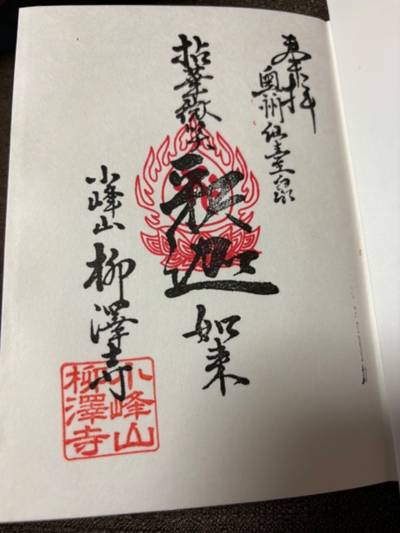 奉拝
奥州仙臺
拈華微笑
釈迦如来
小峰山
柳澤寺
小峰山
柳澤寺